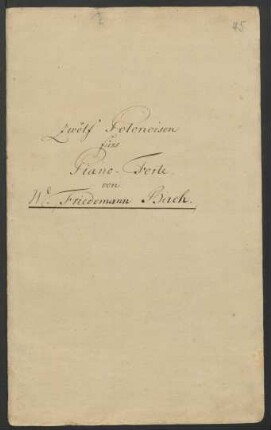 2
45
Zwölf Polonoisen
fürs
Piano-Forte
von
W. Friedemann Bach.